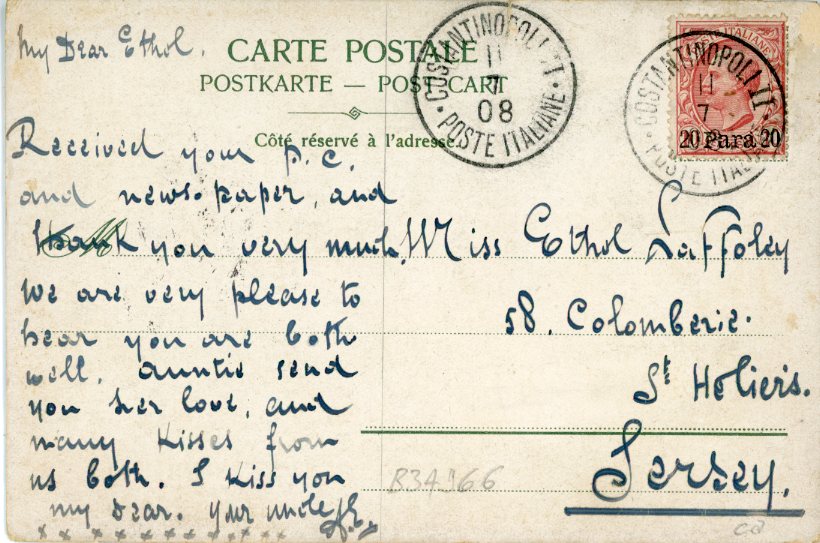 My Dear Ethol.
CARTE POSTALE
POSTKARTE — POST CART
Côté réservé à l'adresse.
COSTANTINOPOLI
11
7
08
POSTE ITALIANE
COSTANTINOPOLI
11
7
20 Para 20
Received your p.c.
and news-paper, and
thank you very much,
we are very please to
hear you are both
well. auntie send
you her love, and
many kisses from
us both. I kiss you
my Dear. your uncle
x x x x x x x x x x x x x
Miss Ethol Laffoley
58. Colomberie.
St Heliers.
Jersey.
B3A966